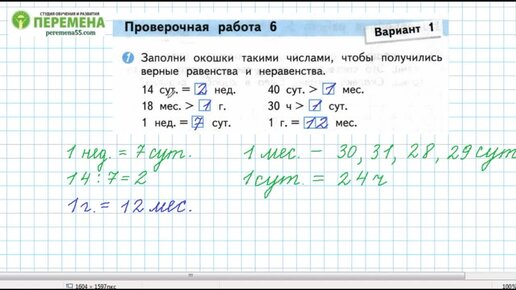 СТУДИЯ ОБУЧЕНИЯ И РАЗВИТИЯ
ПЕРЕМЕНА
peremena55.com
Проверочная работа 6
Вариант 1
1 Заполни окошки такими числами, чтобы получились
верные равенства и неравенства.
14 сут. = 2 нед. 40 сут. > 1 мес.
18 мес. > 1 г. 30 ч > 1 сут.
1 нед. = 7 сут. 1 г. = 12 мес.
1 нед. = 7 сут. 1 мес. – 30, 31, 28, 29 сут
14 : 7 = 2 1 сут. = 24 ч
1 г. = 12 мес.
1604 × 1597пкс
100%